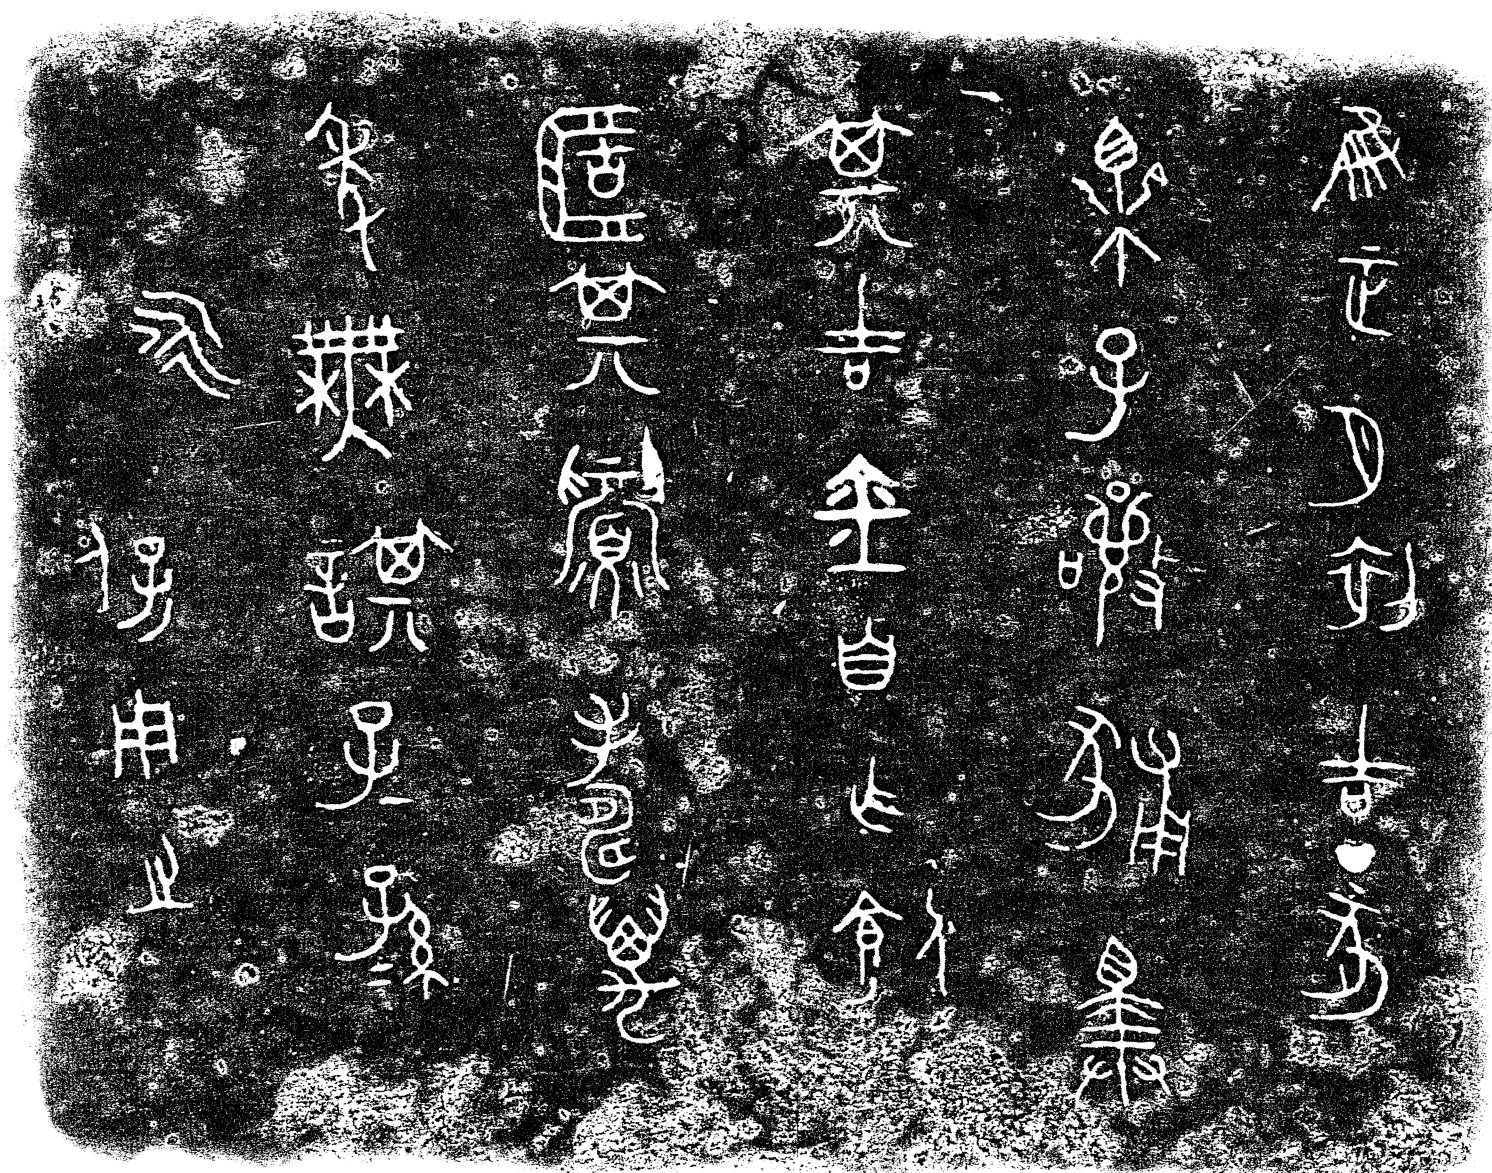 隹正月初吉丁亥
樂子嚷豧擇
其吉金自乍飤
簠其眉壽萬
年無諆子孫=
永保用之